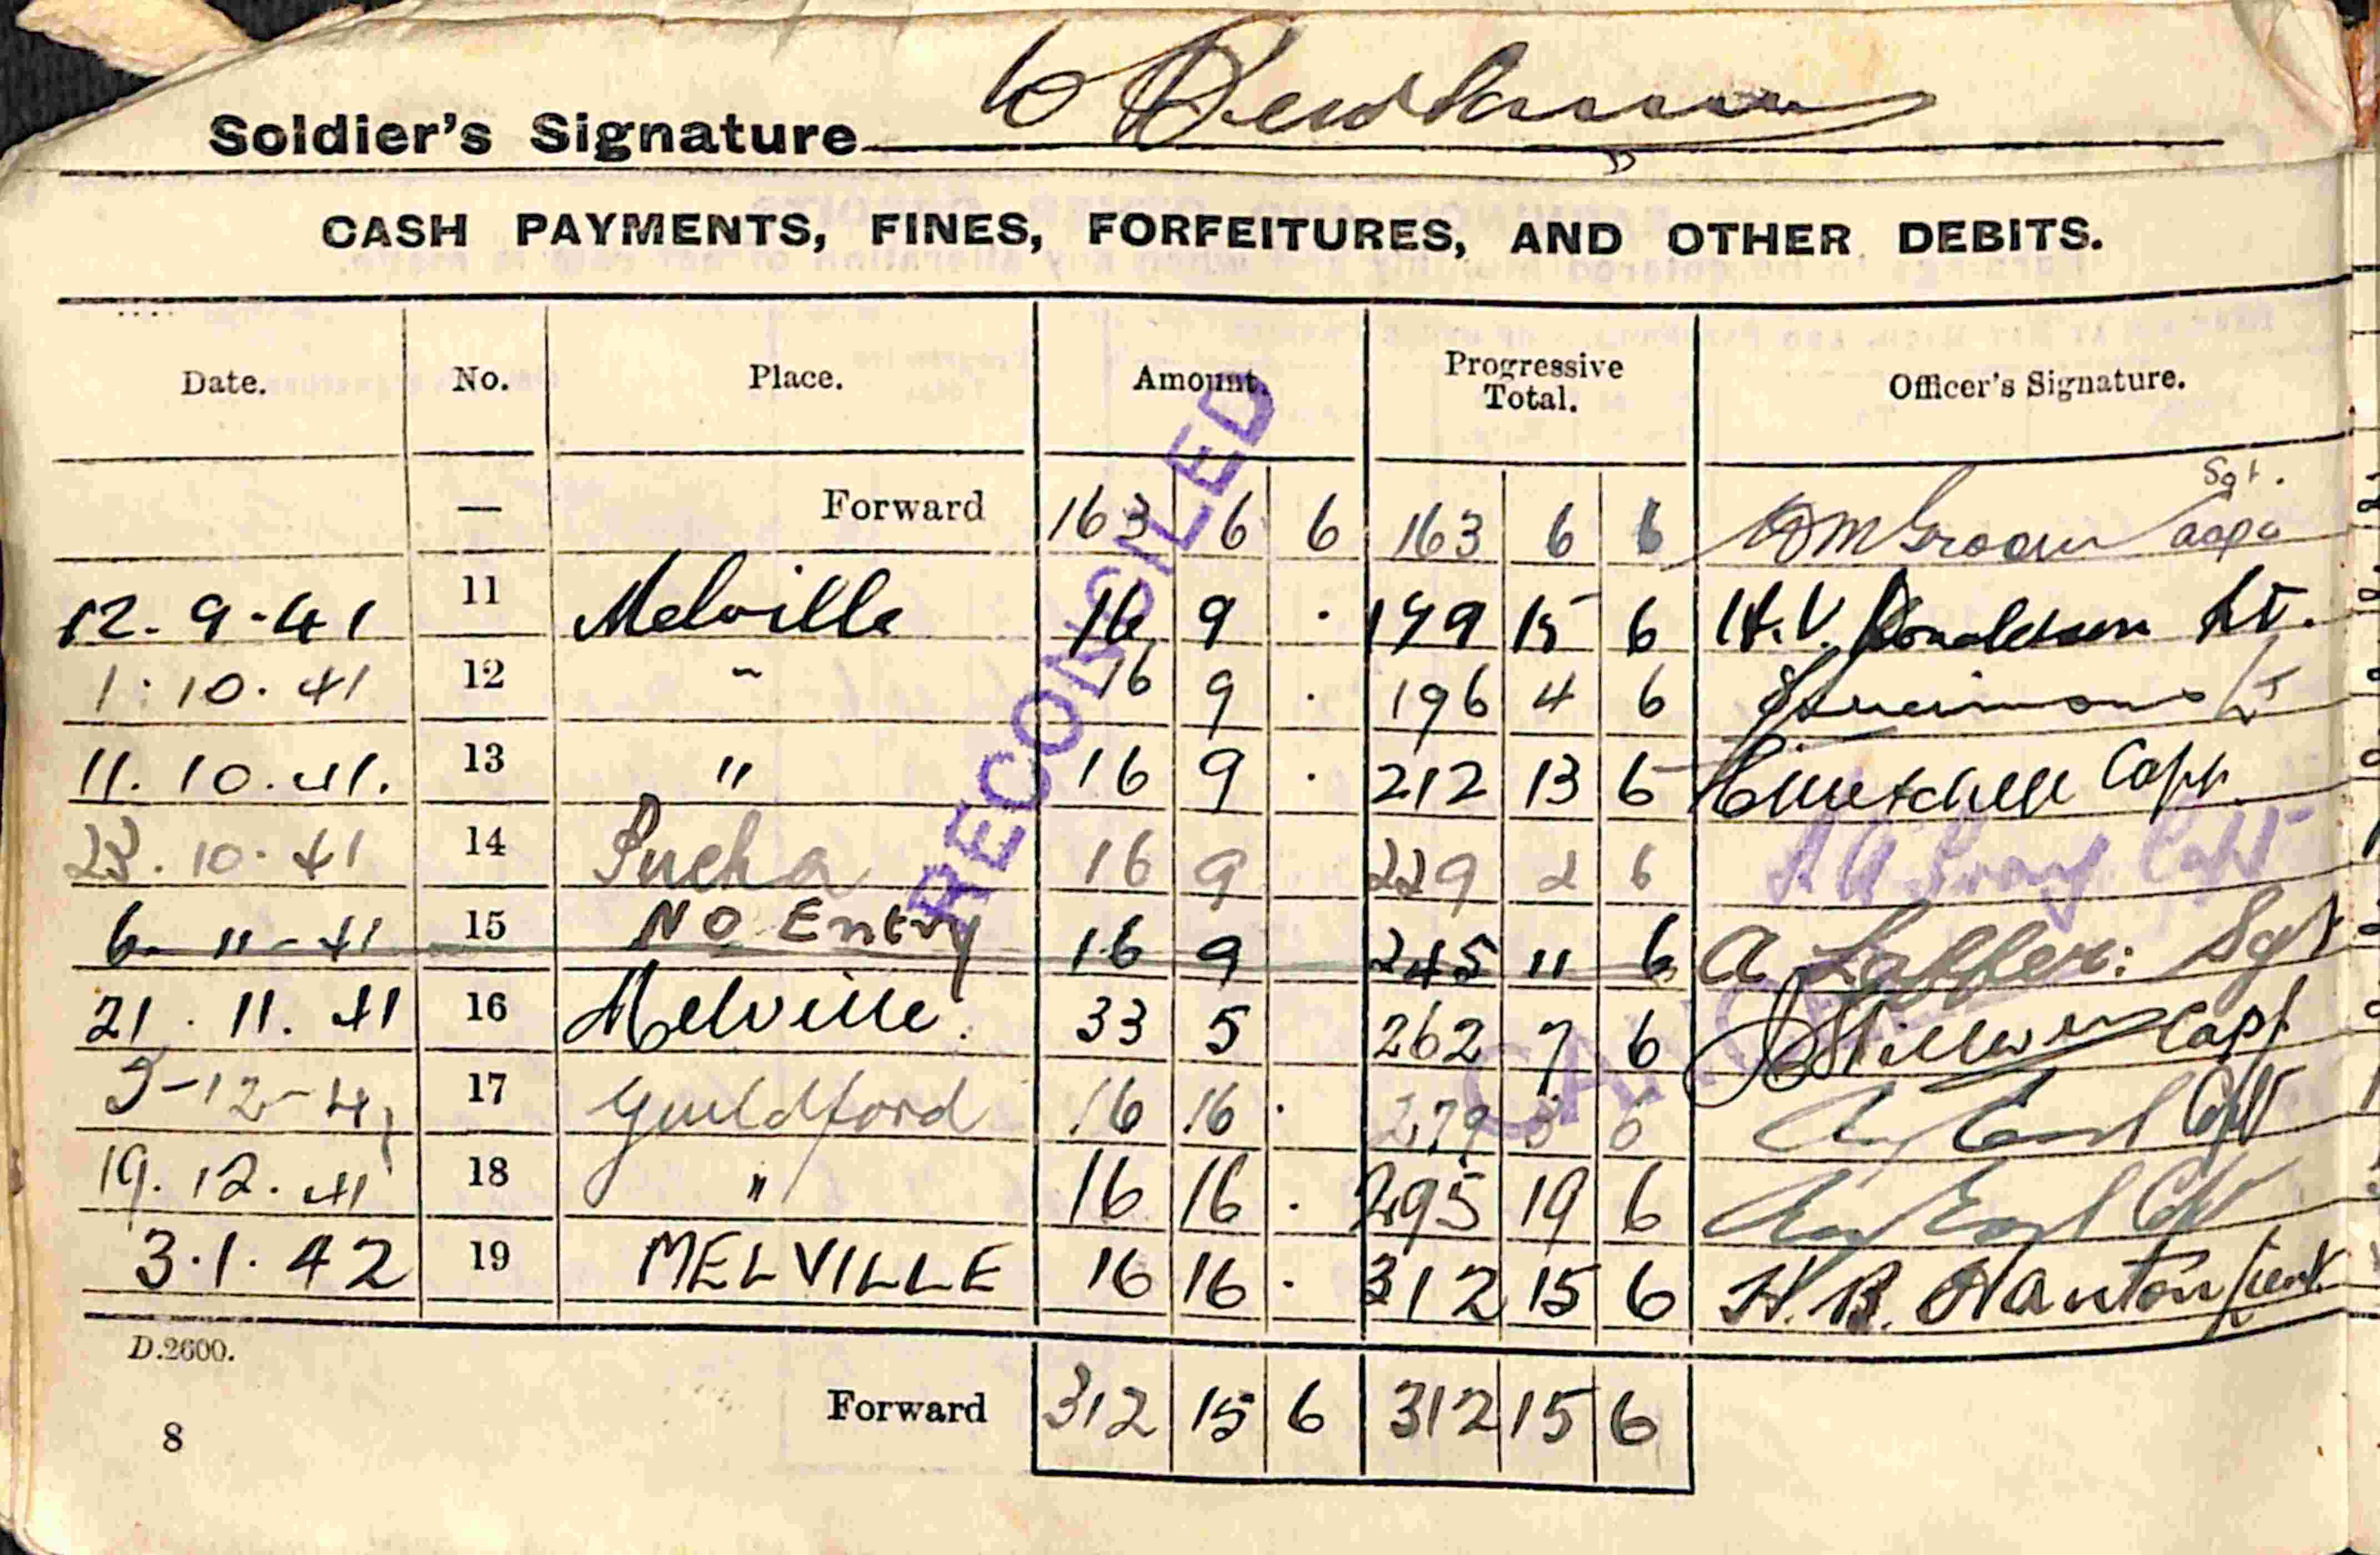 Soldier's Signature
CASH PAYMENTS, FINES, FORFEITURES, AND OTHER DEBITS.
Date. No. Place. Amount. Progressive Total. Officer's Signature.
Sgt.
— Forward 163 6 6 163 6 6
12. 9. 41 11 Melville 16 9 · 179 15 6 H.V. Donaldson Lt.
1. 10. 41 12 " 16 9 · 196 4 6 Lt
11. 10. 41. 13 " 16 9 · 212 13 6 Capt.
23. 10. 41 14 16 9 229 2 6 Capt
6. 11 - 41 15 NO Entry 16 9 245 11 6 A Sgt
21. 11. 41 16 Melville. 33 5 262 7 6 Capt
5-12-41 17 Guildford 16 16 · 279 3 6 Capt
19. 12. 41 18 " 16 16 · 295 19 6 Capt
3. 1. 42 19 MELVILLE 16 16 · 312 15 6 H. B. Lieut
RECONCILED
D.2600.
Forward 312 15 6 312 15 6
8